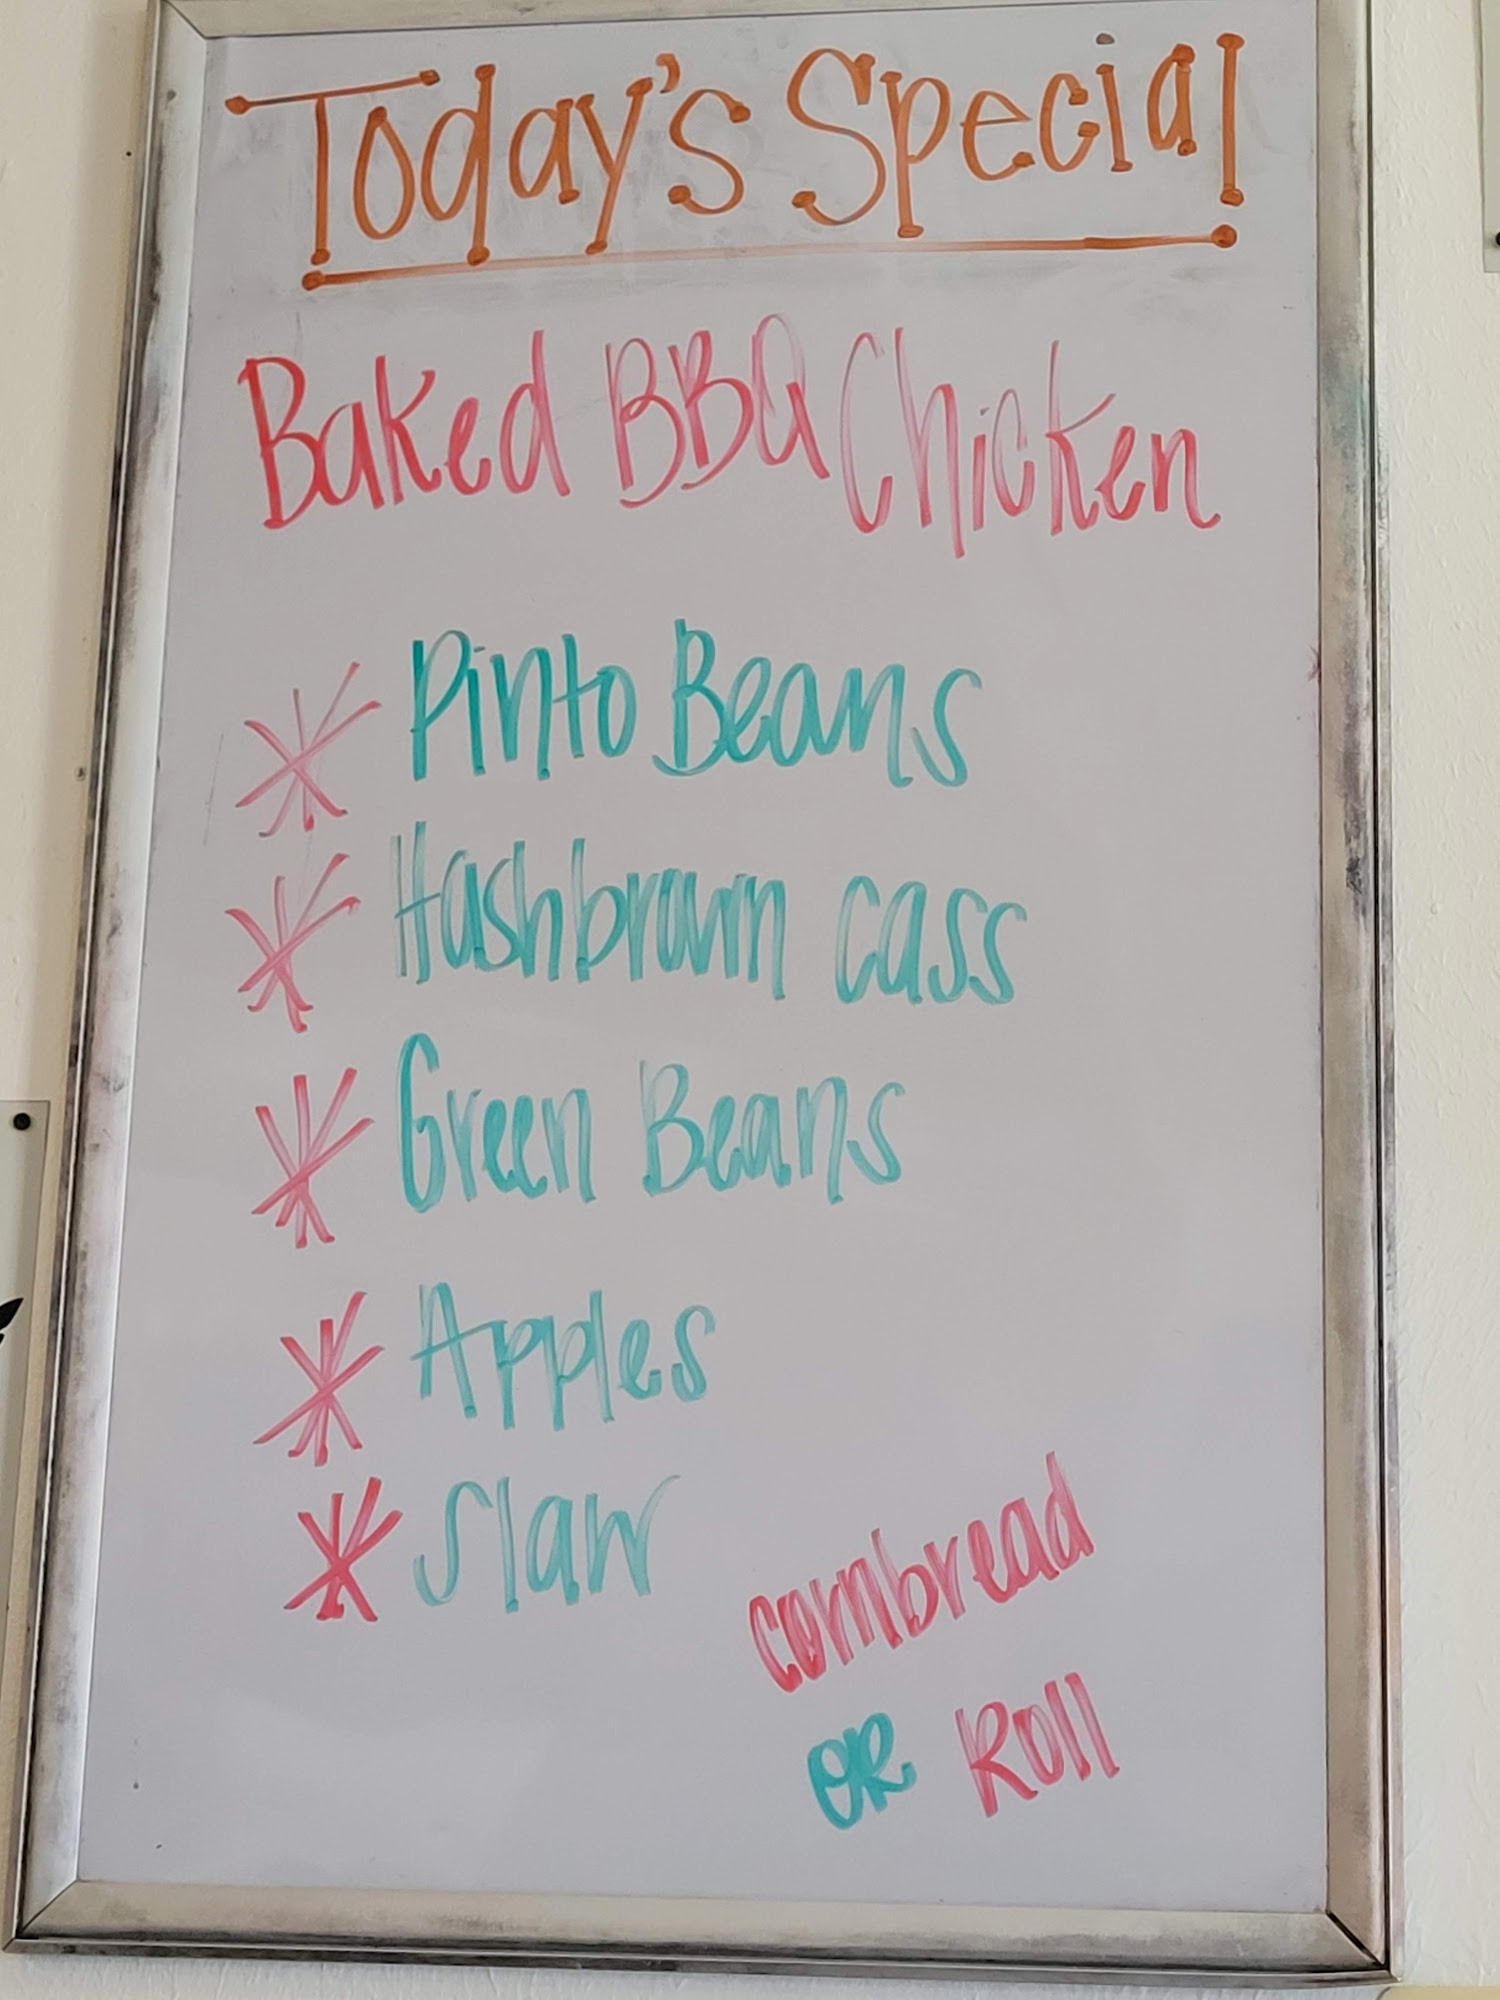 Today's Special
Baked BBQ Chicken
Pinto Beans
Hashbrown cass
Green Beans
Apples
Slaw
cornbread
OR Roll